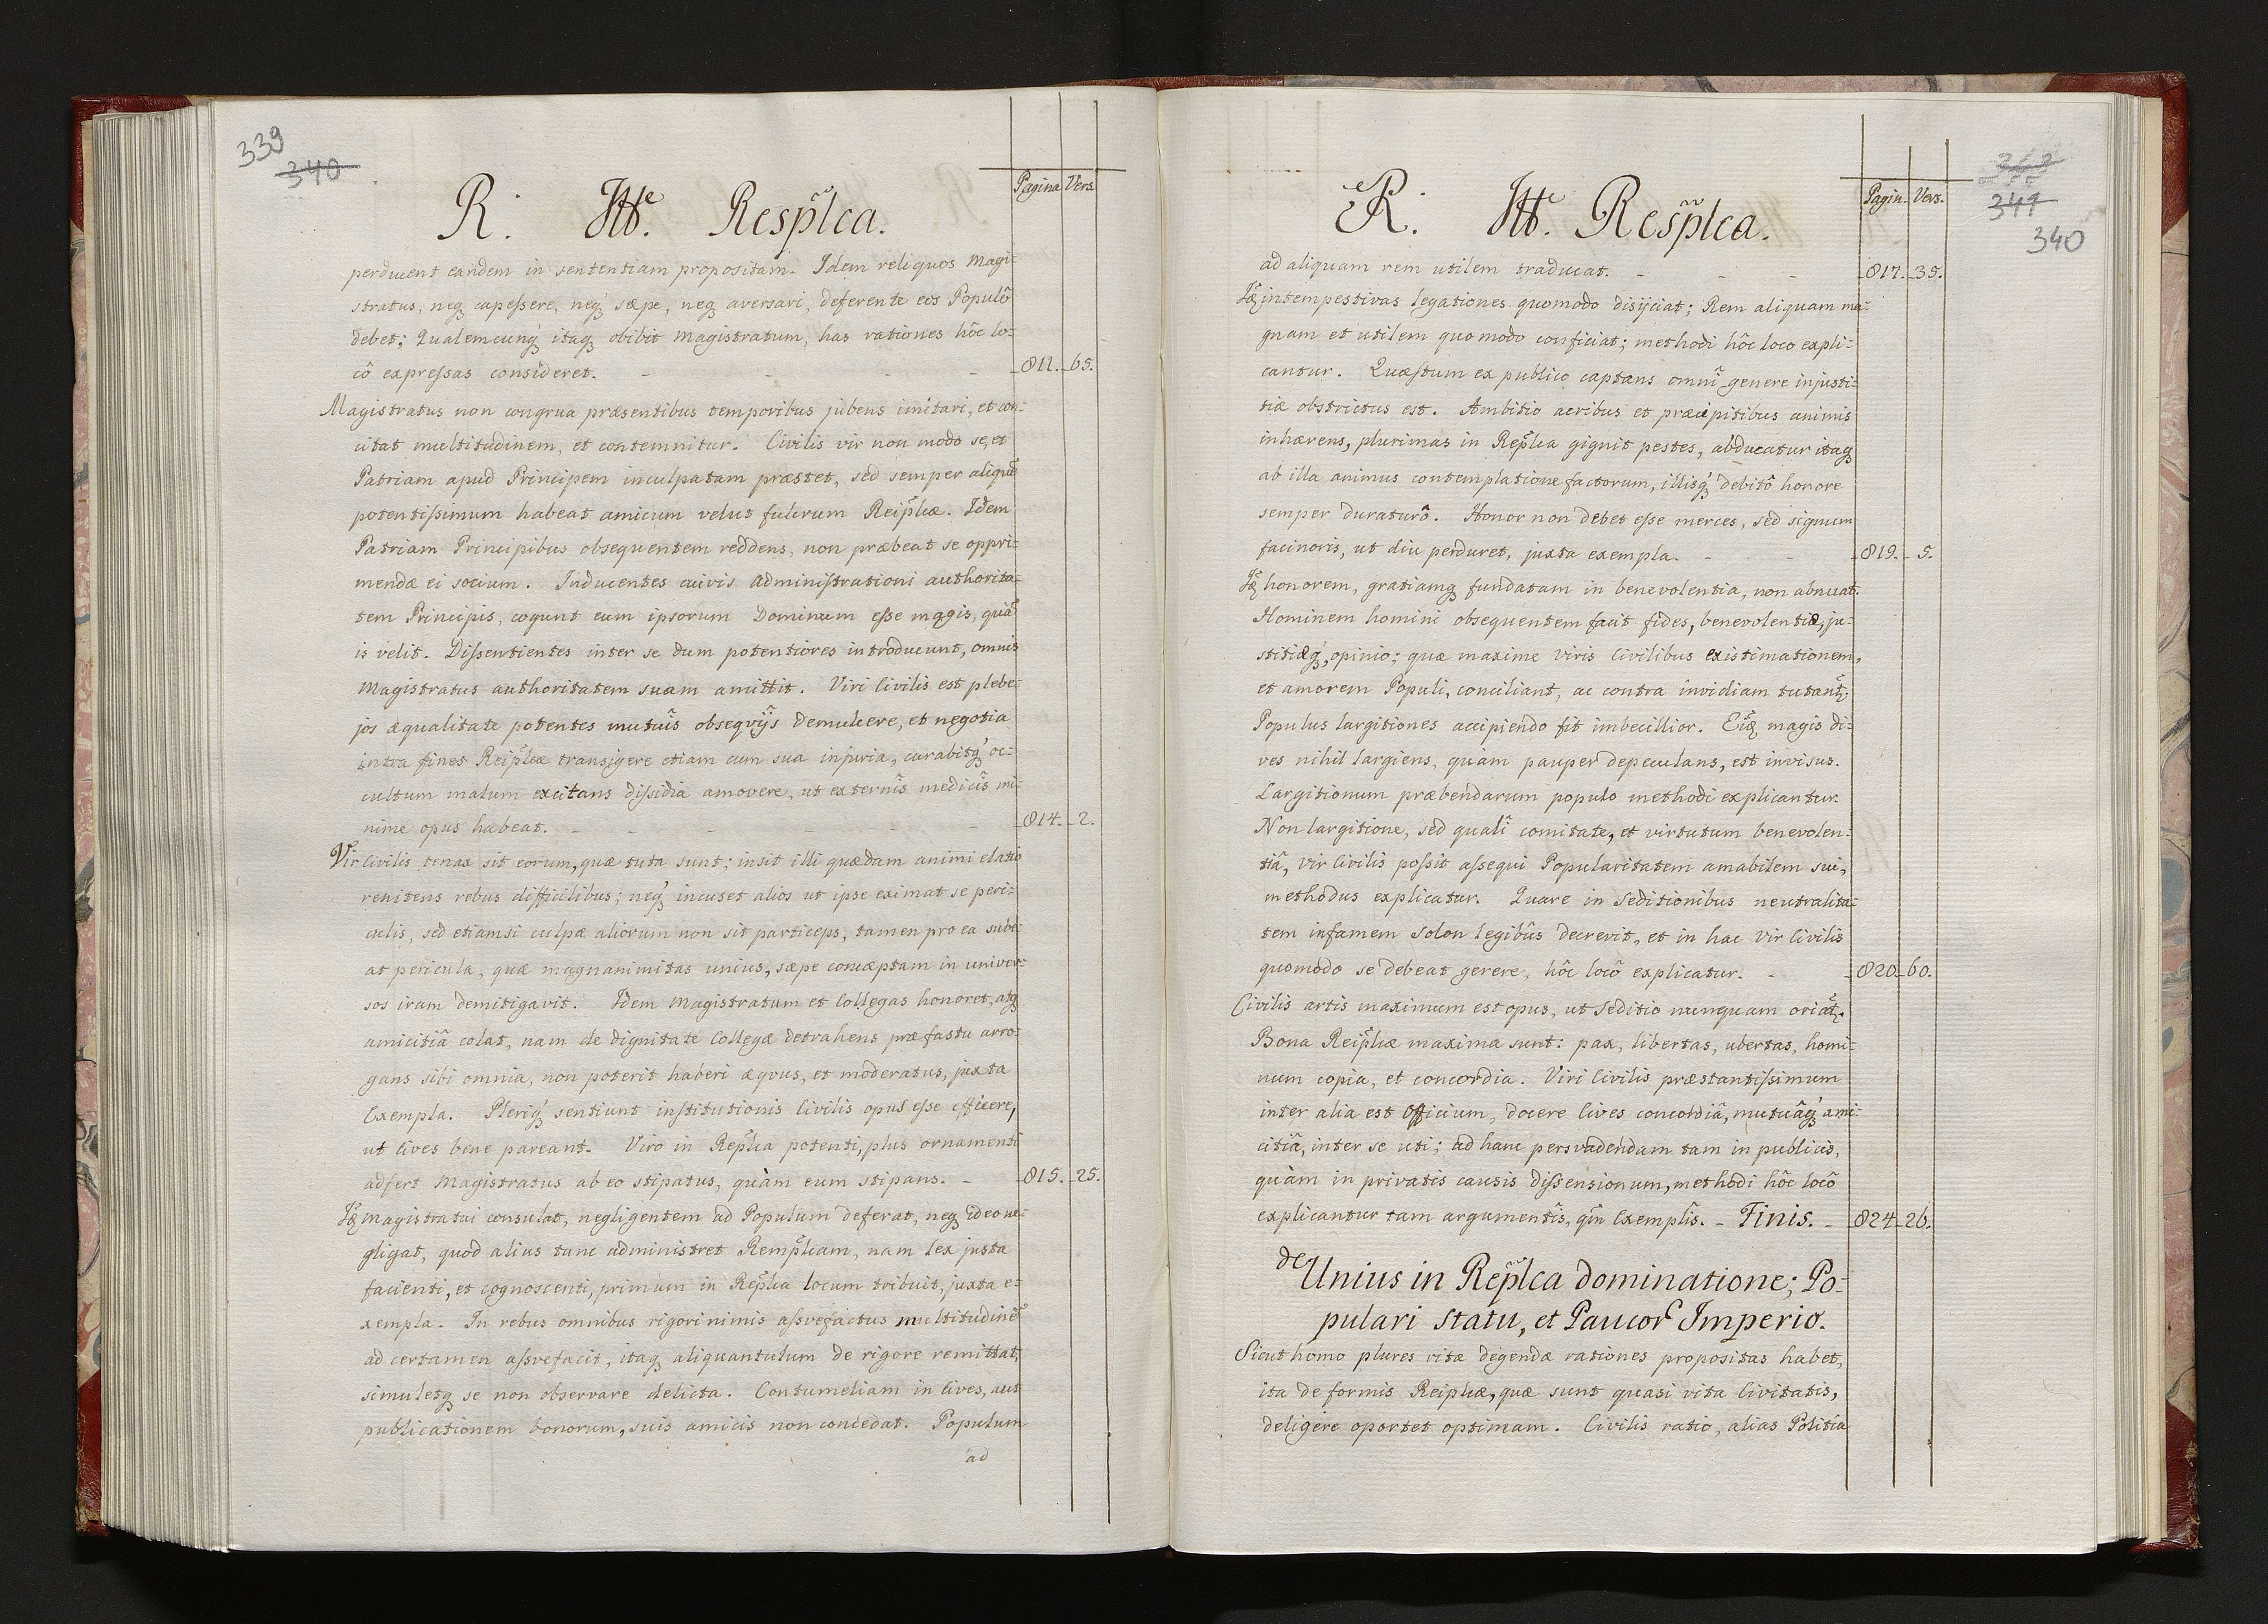 339
340
Pagina Vers
R. Itt͠e. Resp͠lca.
perducent eandem in sententiam propositam. Idem reliquos Magi-
stratus, neq́ capessere, neq́ sæpe, neq́ aversari, deferente eos Populô
debet; Qualemcunq́ itaq́ obibit Magistratum, has rationes hôc lo-
cô expressas consideret. - - - - 811. 65.
Magistratus non congrua præsentibus temporibus jubens imitari, et con-
citat multitudinem, et contemnitur. Civilis vir non modo se, et
Patriam apud Principem inculpatam præstet, sed semper aliquẽ
potentissimum habeat amicum velut fulcrum Reip͠lcæ. Idem
Patriam Principibus obsequentem reddens, non præbeat se oppri-
mendæ ei socium. Inducentes cuivis administrationi authorita-
tem Principis, cogunt eum ipsorum Dominum esse magis, quã
is velit. Dissentientes inter se dum potentiores introducunt, omnis
Magistratus authoritatem suam amittit. Viri Civilis est plebe-
jos æqualitate potentes mutuîs obseqvijs demulcere, et negotia
intra fines Reip͠lcæ transigere etiam cum sua injuria, curabitq́ oc-
cultum malum excitans dissidia amovere, ut externîs medicîs mi-
nime opus habeat. - - - - - 814. 2.
Vir Civilis tenax sit eorum, quæ tuta sunt: insit illi quædam animi elatio
renitens rebus difficilibus; neq́ incuset alios ut ipse eximat se peri-
culis, sed etiamsi culpæ aliorum non sit particeps, tamen pro ea sube-
at pericula, quæ magnanimitas unius, sæpe conceptam in univer-
sos iram demitigavit. Idem Magistratum et Collegas honoret, atq́
amicitiâ colat, nam de dignitate Collegæ detrahens præ fastu arro-
gans sibi omnia, non poterit haberi æqvus, et moderatus, juxta
Exempla. Pleriq́ sentiunt institutionis Civilis opus esse efficere,
ut Cives bene pareant. Viro in Rep͠lca potenti, plus ornamenti
adfert Magistratus ab eo stipatus, quàm eum stipans. - 815. 25.
Itq́ Magistratui consulat, negligentem ad Populum deferat, neq́ ideo ne-
gligat, quod alius tunc administret Remp͠lcam, nam lex justa
facienti, et cognoscenti, primum in Rep͠lca locum tribuit, juxta e-
xempla. In rebus omnibus rigori nimis assvefactus multitudinẽ
ad certamen assvefacit, itaq́ aliquantulum de rigore remittat,
simuletq́ se non observare delicta. Contumeliam in Cives, aut
publicationem bonorum, suis amicis non concedat. Populum
ad
363
341
340
Pagin. Vers.
R. Itt͠e. Resp͠lca.
ad aliquam rem utilem traducat. - - - 817. 35.
Itq́ intempestivas legationes quomodo disijciat; Rem aliquam ma-
gnam et utilem quomodo conficiat; methodi hôc loco expli-
cantur. Quæstum ex publico captans omnî genere injusti-
tiæ obstrictus est. Ambitio acribus et præcipitibus animis
inhærens, plurimas in Rep͠lca gignit pestes, abducatur itaq́
ab illa animus contemplatione factorum, illisq́ debitô honore
semper duraturô. Honor non debet esse merces, sed signum
facinoris, ut diu perduret, juxta exempla. - - 819. 5.
Itq́ honorem, gratiamq́ fundatam in benevolentia, non abnuat.
Hominem homini obsequentem facit fides, benevolentiæ, ju-
stitiæq́, opinio; quæ maxime viris Civilibus existimationem,
et amorem Populi, conciliant, ac contra invidiam tutant͠.
Populus largitiones accipiendo fit imbecillior. Eiq́ magis di-
ves nihil largiens, quàm pauper depeculans, est invisus.
Largitionum præbendarum populo methodi explicantur.
Non largitione, sed qualî comitate, et virtutum benevolen-
tiâ, vir Civilis possit assequi Popularitatem amabilem sui,
methodus explicatur. Quare in seditionibus neutralita-
tem infamem Solon legibûs decrevit, et in hac Vir Civilis
quomodo se debeat gerere, hôc locô explicatur. - 820. 60.
Civilis artis maximum est opus, ut seditio nunquam oriat͠.
Bona Reip͠lcæ maxima sunt: pax, libertas, ubertas, homi-
num copia, et concordia. Viri Civilis præstantissimum
inter alia est Officium, docere Cives concordiâ, mutuâq́ ami-
citiâ, inter se uti; ad hanc persvadendam tam in publicis,
quàm in privatis causis dissensionum, methodi hôc locô
explicantur tam argumentîs, qm̃ Exemplîs. - Finis. - 824. 26.
de Unius in Rep͠lca dominatione; Po-
pulari statu, et Paucor̃ Imperio.
Sicut homo plures vitæ degendæ rationes propositas habet,
ita de formis Reiplcæ, quæ sunt quasi vita Civitatis,
deligere oportet optimam. Civilis ratio, alias Politia